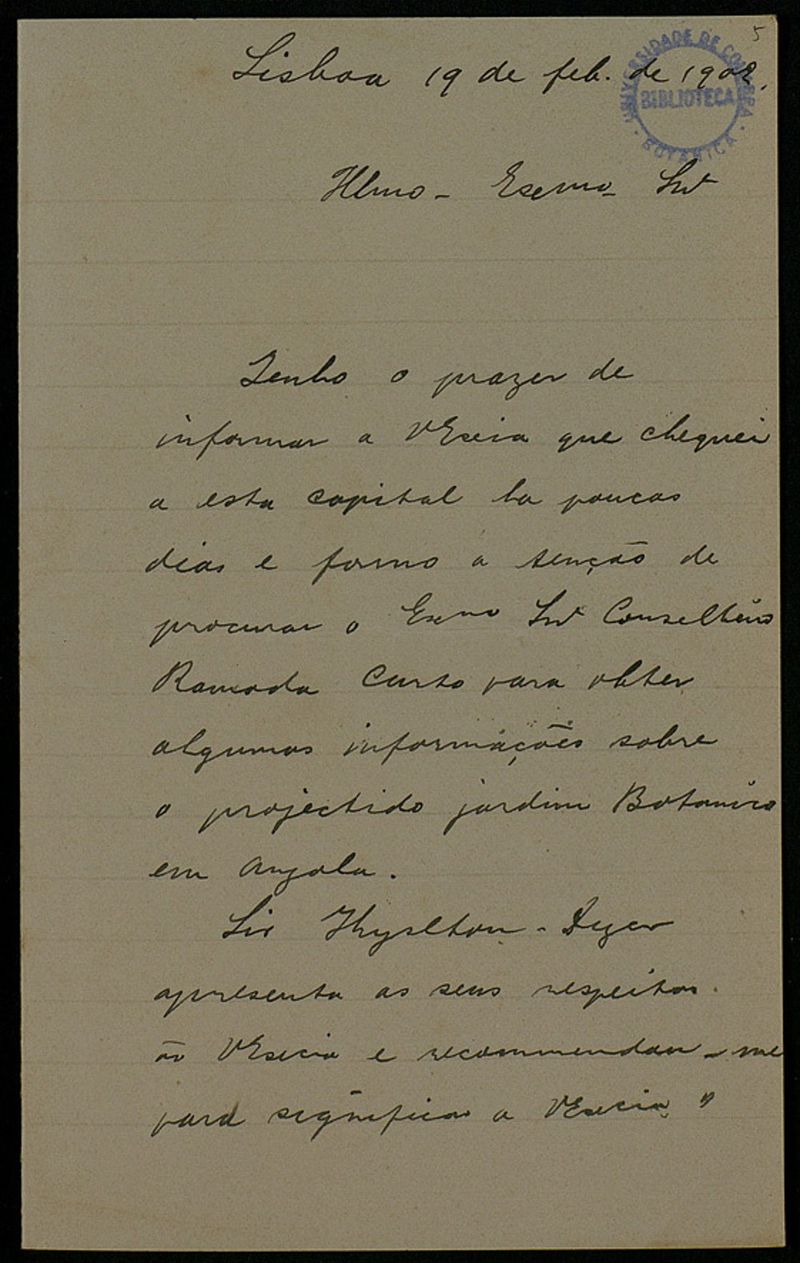 5
Lisboa 19 de feb. de 1902.
UNIVERSIDADE DE COIMBRA
BIBLIOTECA
BOTANICA
Illmo - Exmo - Snr
Tenho o prazer de
informar a VExcia que cheguei
a esta capital ha poucos
dias e formo a tenção de
procurar o Exmo Snr Conselheiro
Ramada Curto para obter
algumas informações sobre
o projectido jardim Botanico
em Angola.
Sir Thyselton - Dyer
apresenta os seus respeitos
ao VExcia e recommendou-me
para significar a VExcia "